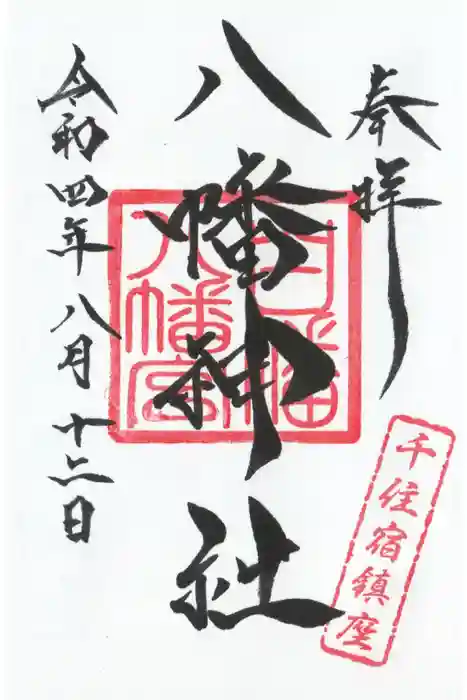 奉拝
千住宿鎮座
八幡神社
白幡
八幡宮
令和四年八月十六日